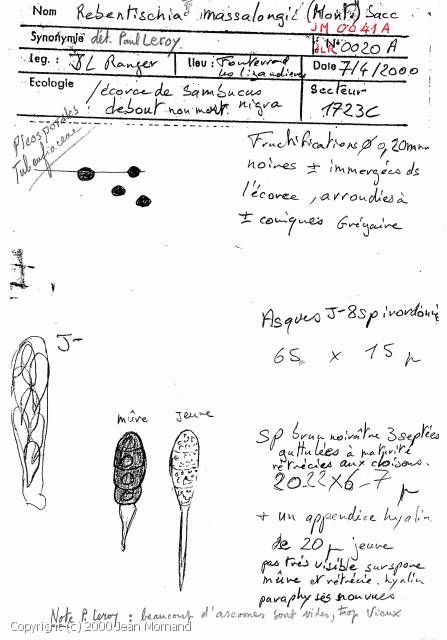 Nom Rebentischia massalongii (Mont.) Sacc
JM 0041A
Synonymie dét. Paul Leroy. N° 0020 A
leg.: JL Ranger lieu: Fontevraud Date 7/4/2000
les
Ecologie /écorce de Sambucus nigra Secteur
debout non mort 1723C
Pleosporales
Tubeufiaceae
Fructifications ø 0,20mm
noires ± immergées ds
l'écorce, arrondies à
± coniques Grégaire
Asques J- 8sp inordonné
65 x 15 µ
J-
mûre jeune
sp brun noirâtre 3 septées
guttulées à maturité
rétrécies aux cloisons.
20.22 x 6-7 µ
+ un appendice hyalin
de 20 µ jeune
pas très visible sur spore
mûre et rétrécie. hyalin
paraphyses
Note P. Leroy : beaucoup d'ascomes sont vides, trop vieux
Copyright (c) 2000 Jean Mornand